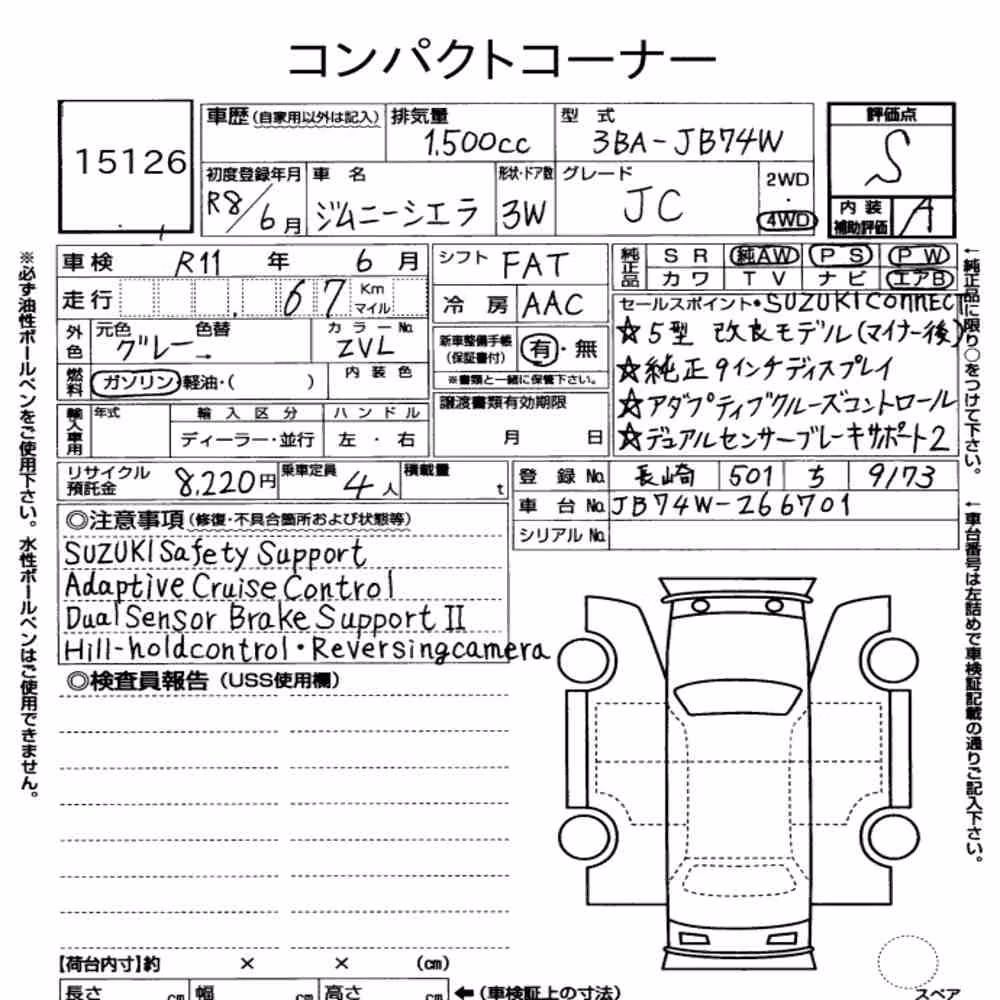 コンパクトコーナー
15126
車歴 (自家用以外は記入)
排気量 1.500cc
型式 3BA-JB74W
評価点 S
初度登録年月 R8/6月
車名 ジムニーシエラ
形状・ドア数 3W
グレード JC
2WD ・ 4WD
内装補助評価 A
車検 R11年 6月
シフト FAT
純正品 SR 純AW PS PW
カワ TV ナビ エアB
走行 67 Km マイル
冷房 AAC
セールスポイント・SUZUKI CONNECT
☆5型 改良モデル(マイナー後)
☆純正9インチディスプレイ
☆アダプティブクルーズコントロール
☆デュアルセンサーブレーキサポート2
外色 元色 グレー → 色替
カラーNo. ZVL
新車整備手帳 (保証書付) 有・無
※書類と一緒に保管下さい。
燃料 ガソリン・軽油・( )
内装色
譲渡書類有効期限
月 日
輸入車用 年式 輸入区分 ハンドル
ディーラー・並行 左・右
リサイクル預託金 8,220円
乗車定員 4人
積載量 t
登録No. 長崎 501 ち 9/73
車台No. JB74W-266701
シリアルNo.
◎注意事項(修復・不具合箇所および状態等)
SUZUKI Safety Support
Adaptive Cruise Control
Dual Sensor Brake Support II
Hill-hold control・Reversing camera
◎検査員報告(USS使用欄)
【荷台内寸】約 × × (cm)
長さ cm 幅 cm 高さ cm ←(車検証上の寸法)
スペア
※必ず油性ボールペンをご使用下さい。水性ボールペンはご使用できません。
←純正品に限り○をつけて下さい。
←車台番号は左詰めで車検証記載の通りご記入下さい。